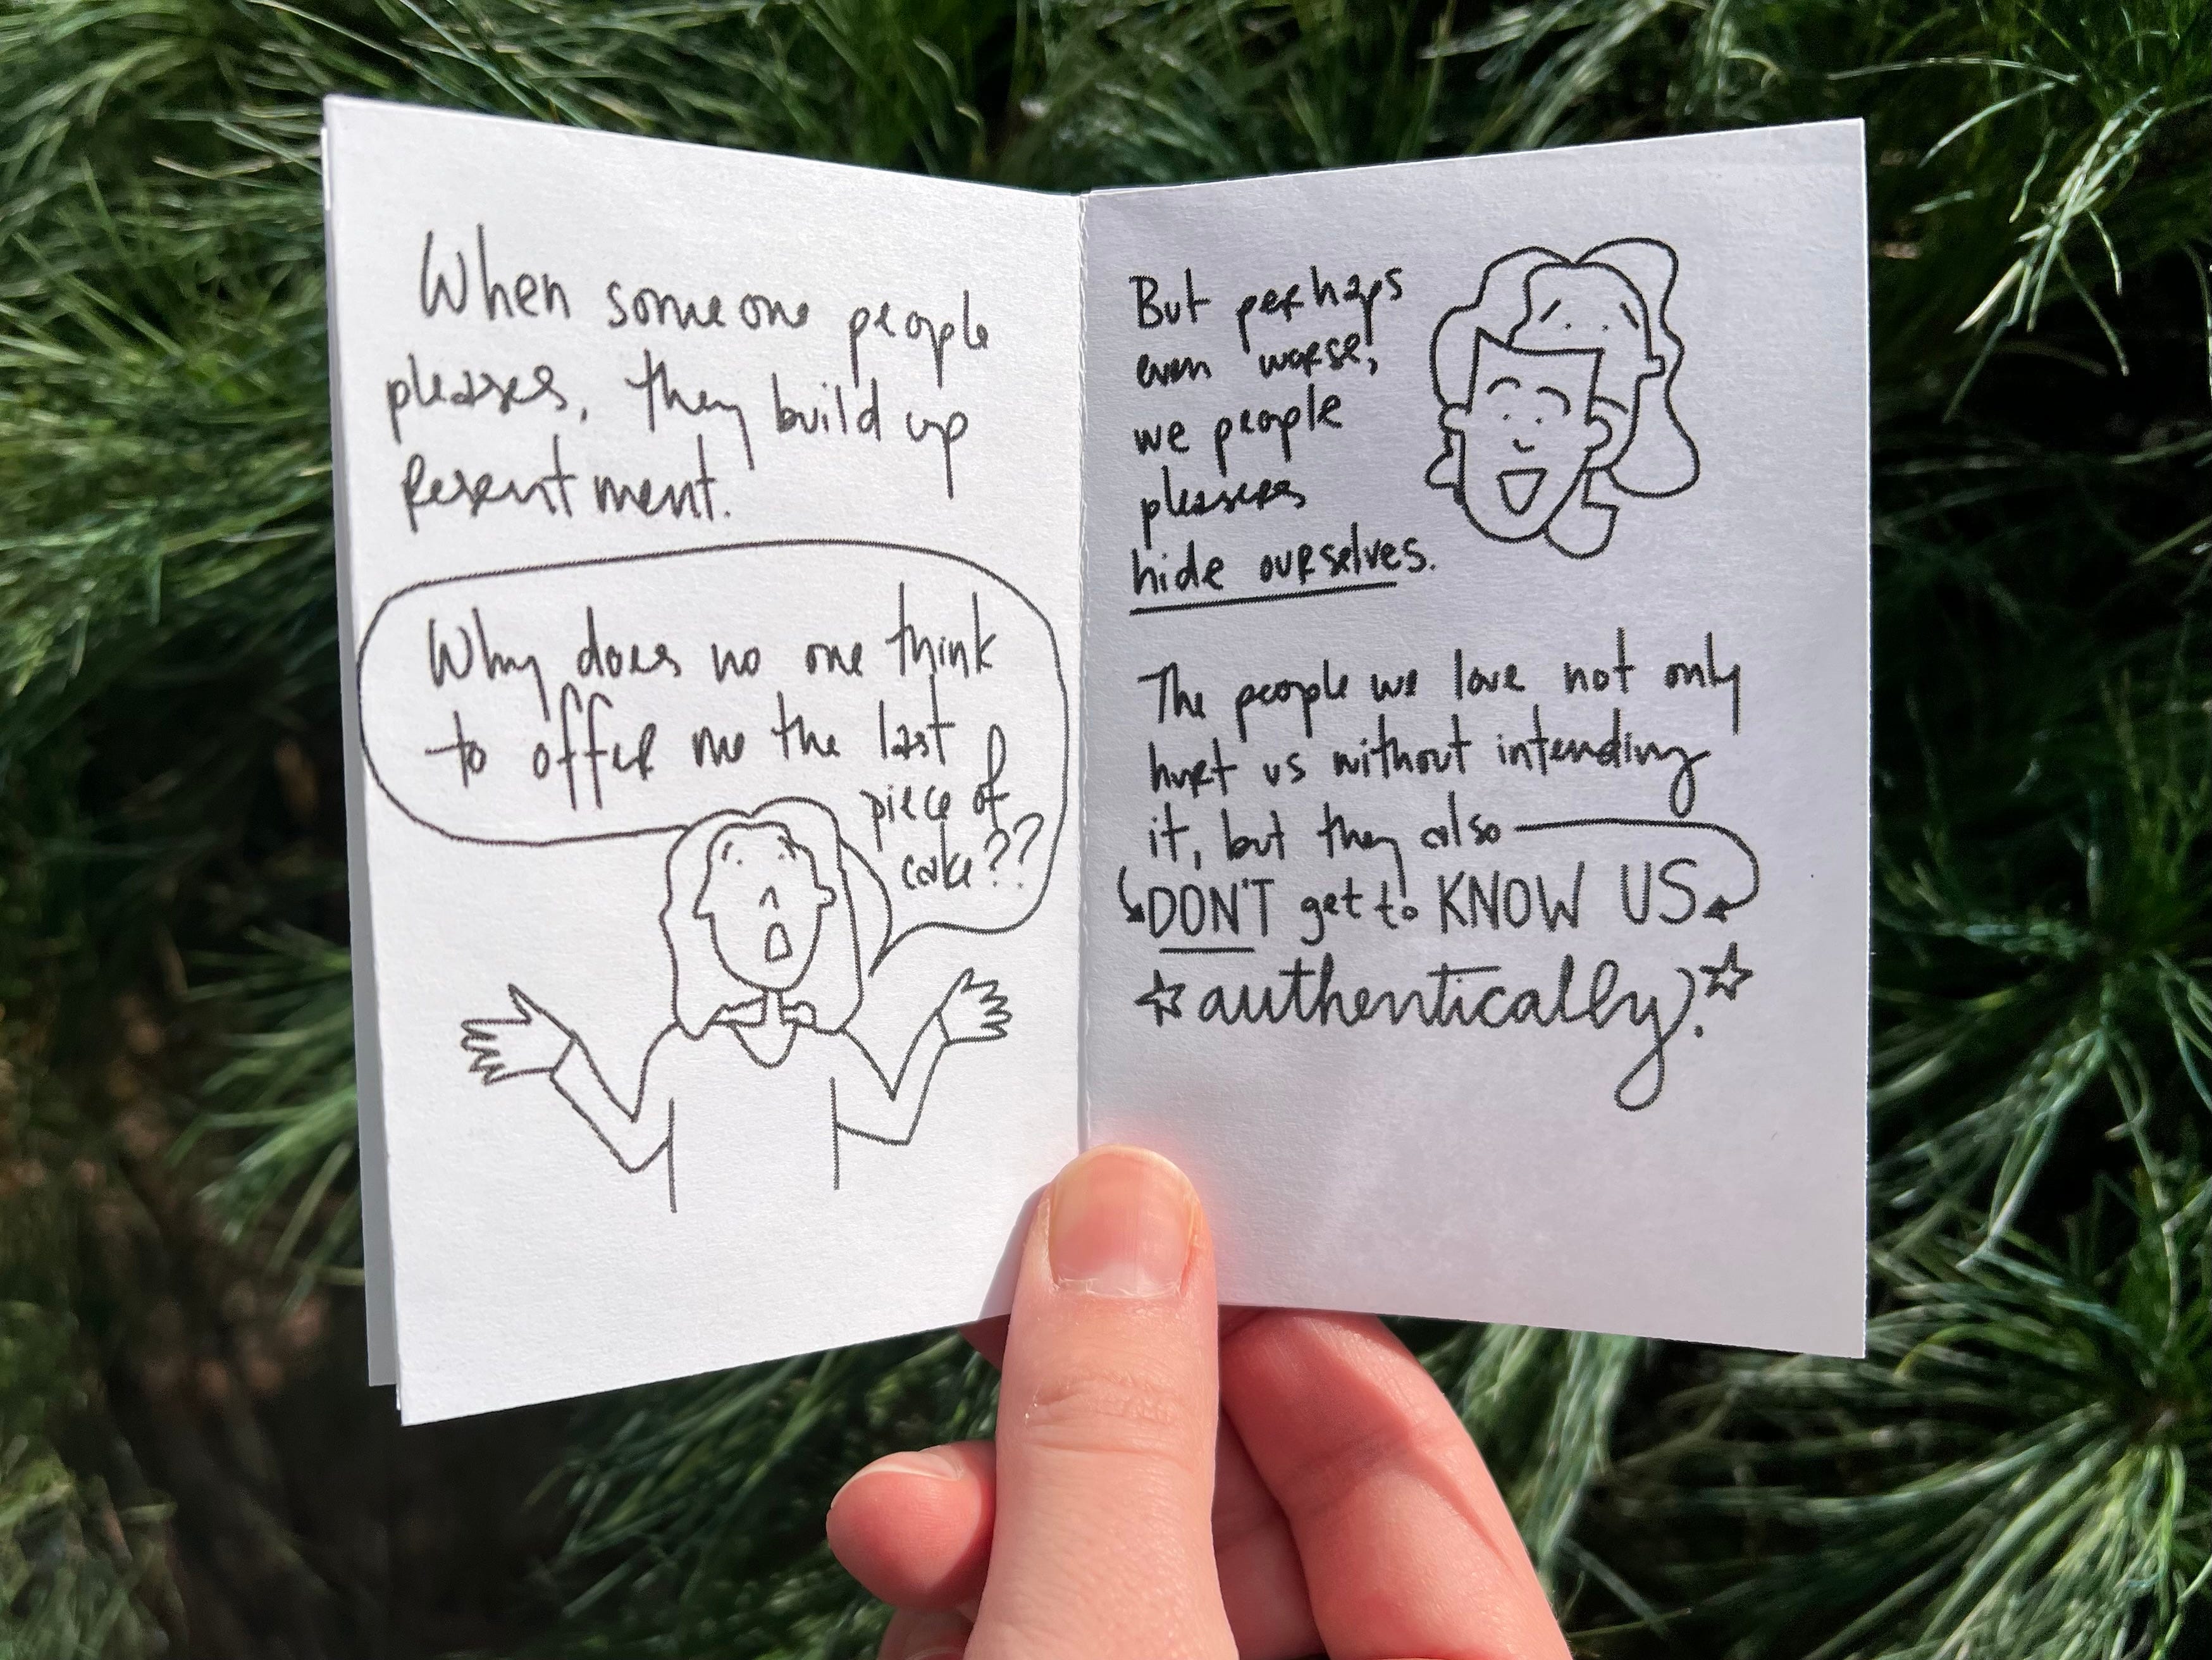 When someone people
pleases, they build up
Resentment.
Why does no one think
to offer me the last
piece of
cake??
But perhaps
even worse,
we people
pleasers
hide ourselves.
The people we love not only
hurt us without intending
it, but they also
DON'T get to KNOW US
authentically.